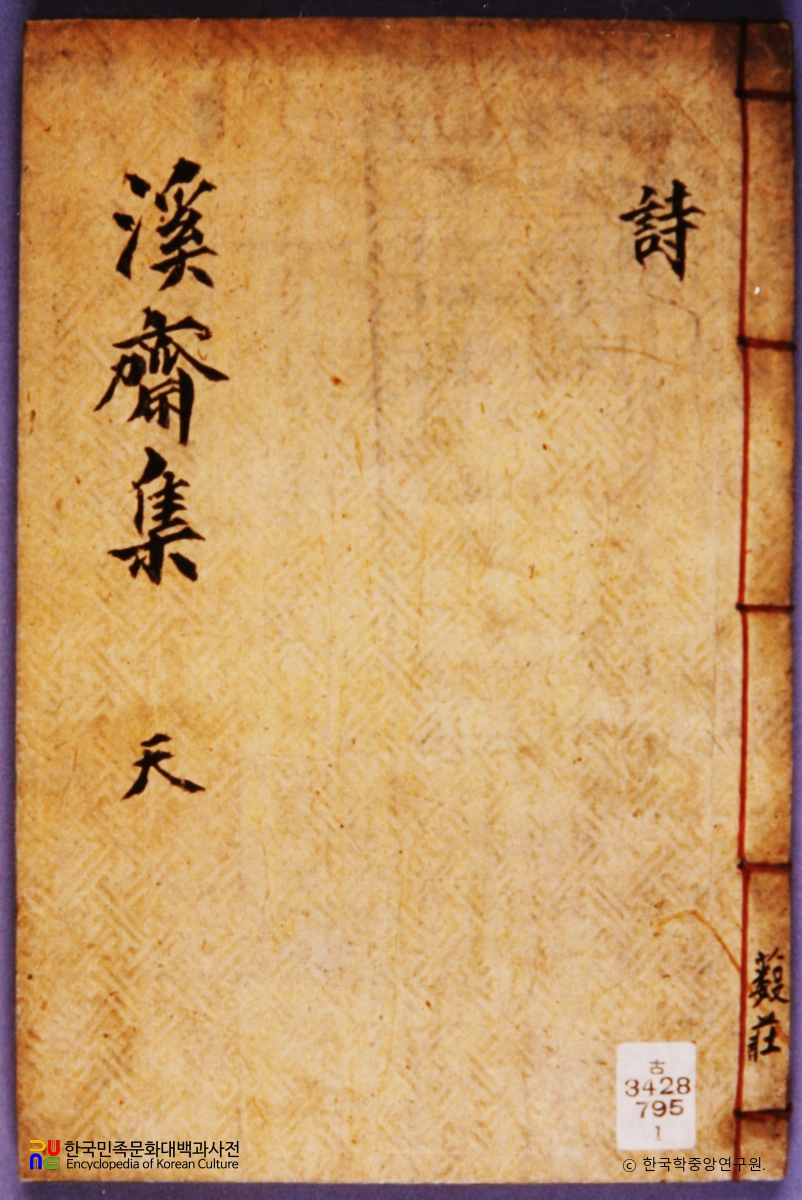 詩
溪齋集 天
莊
古
3428
795
1
한국민족문화대백과사전
Encyclopedia of Korean Culture
© 한국학중앙연구원.